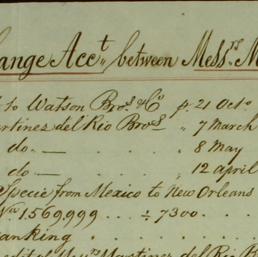 ange Acct,, between Messrs M
to Watson Bros & Co p. 21 Octo
artinez del Rio Bros „ 7 March
do — „ 8 May
do — „ 12 april
Specie from Mexico to New Orleans
1569,999 . . . ÷ 7300 . .
anking . . .
Martinez del Rio